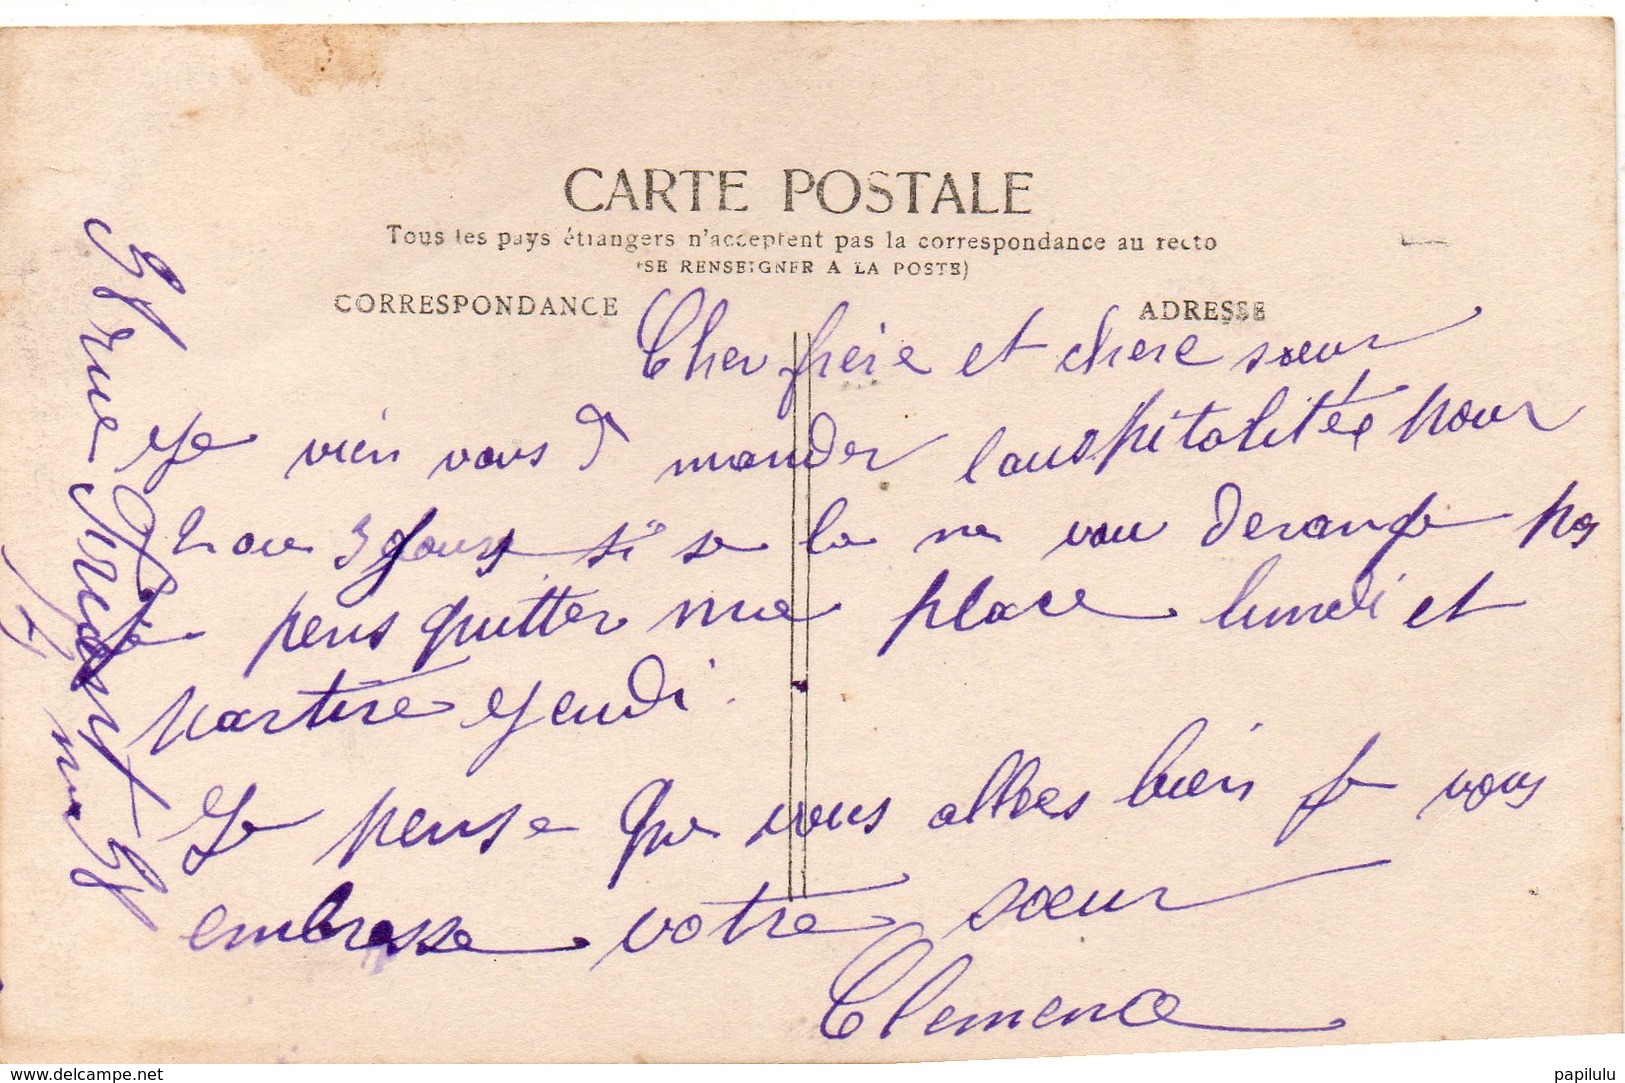 CARTE POSTALE
Tous les pays étrangers n'acceptent pas la correspondance au recto
(SE RENSEIGNER A LA POSTE)
CORRESPONDANCE
ADRESSE
Cher frére et chere sœur
Je vien vous d mander l'auspitalitée pour
2 ou 3 Jours si se la ne vou derange pas
Je pens quitter me place lundi et
partire Jeudi.
Je pense que vous allées bien Je vous
embrasse votre sœur
Clemence
rue
www.delcampe.net
papilulu